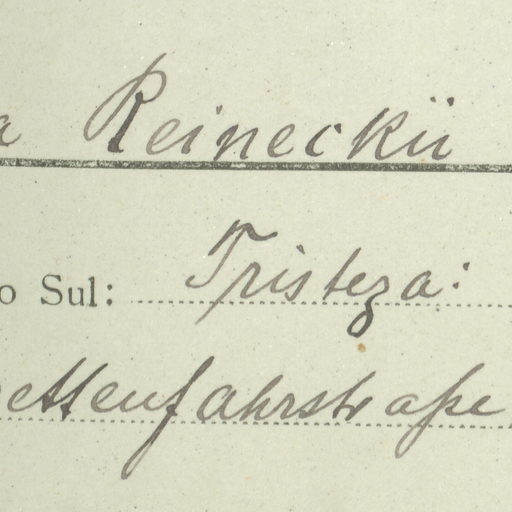 a Reineckü
o Sul: Tristeza:
ettenfahrstraße